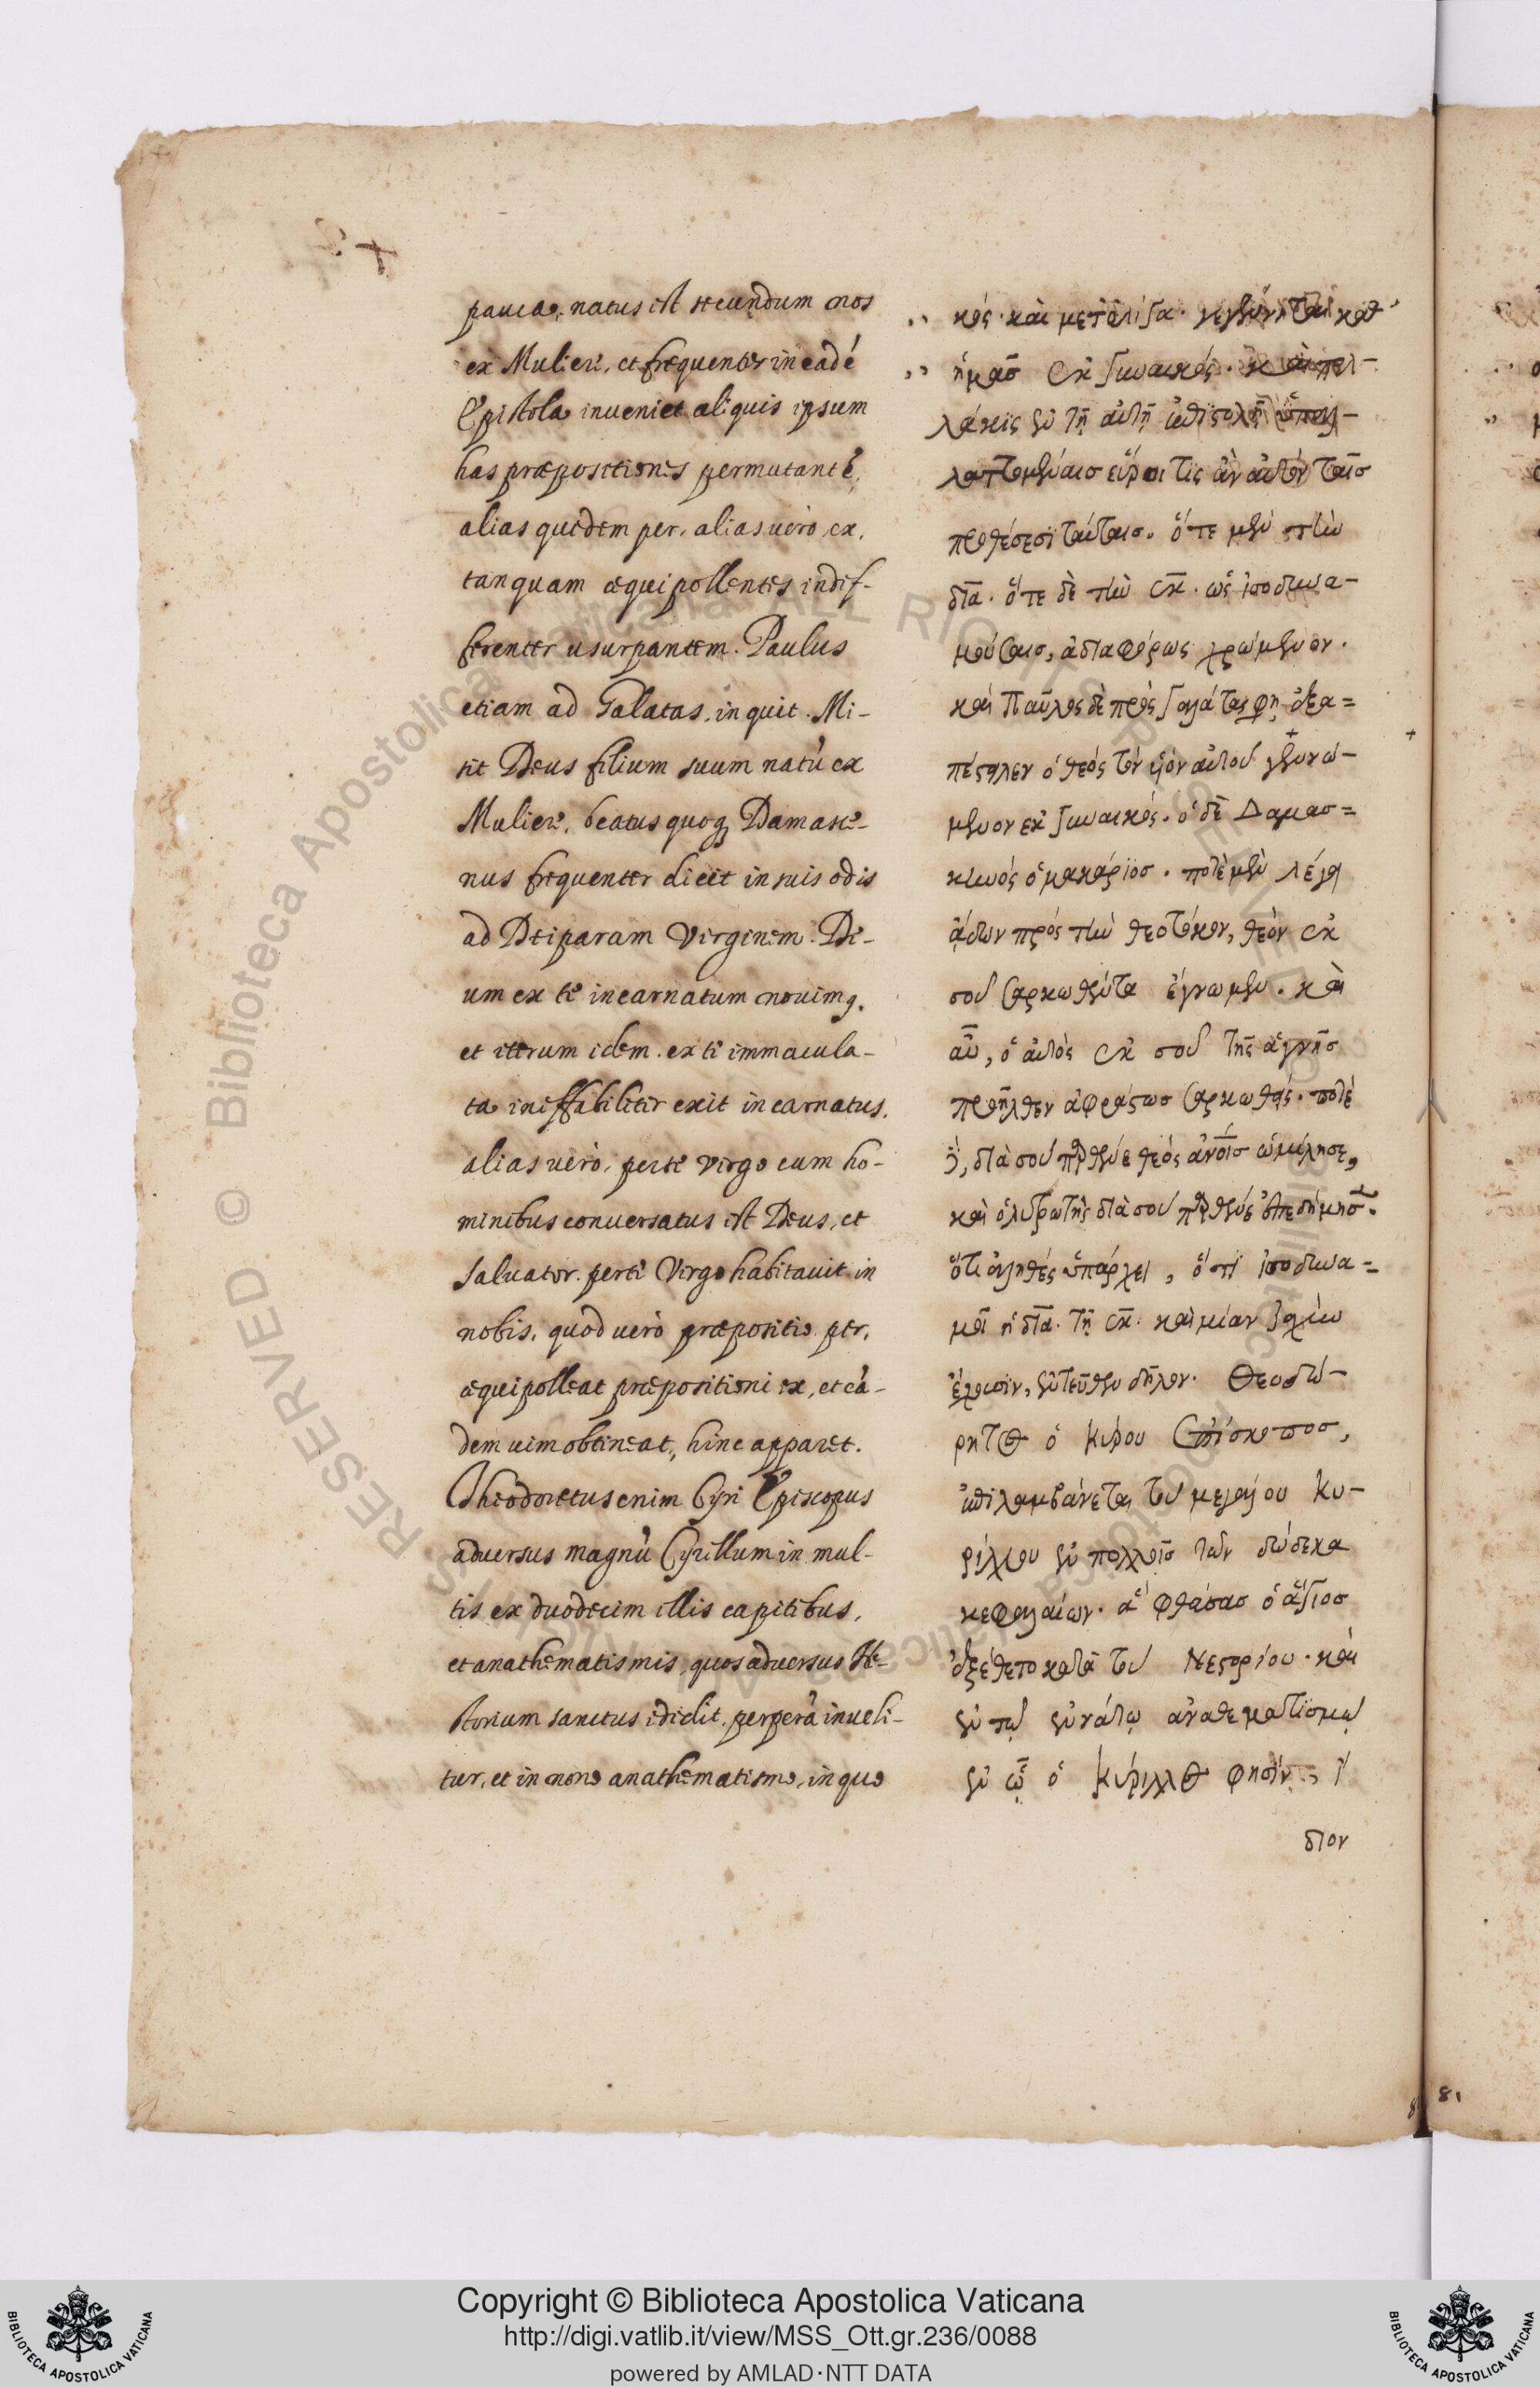 pauca, natus est secundum nos
ex Muliere, et frequenter in eadẽ
Epistola inveniet aliquis ipsum
has præpositiones permutantẽ,
alias quidem per, alias uerò, ex,
tanquam æquipollentes indif-
ferenter usurpantem. Paulus
etiam ad Galatas, inquit. Mi-
sit Deus filium suum natũ ex
Muliere, beatus quoq; Damasce-
nus frequenter dicit in suis odis
ad Deiparam Virginem. De-
um ex te incarnatum novimꝰ.
et iterum idem. ex te immacula-
ta ineffabiliter exit incarnatus.
alias uerò, per te Virgo cum ho-
minibus conuersatus est Deus, et
Saluator. per te Virgo habitauit in
nobis, quòd uerò præpositio per,
æquipolleat præpositioni ex, et eã-
dem uim obtineat, hinc apparet.
Theodoretus enim Cyri Episcopus
aduersus magnũ Cyrillum in mul-
tis ex duodecim illis capitibus,
et anathematismis, quos aduersus Ne-
storium sanctus edidit, perperã inuehi-
tur, et in nono anathematismo, in quo
κός· καὶ μετ' ὀλίγα· γεγέννηται καθ'
ἡμᾶσ ἐκ γυναικός·
λάκις ἐν τῇ αὐτῇ ἐπιστολῇ
λαττομέναισ εὕροι τις ἂν αὐτὸν ταῖσ
προθέσεσι ταύταισ. ὅτε μὲν τὴν
διὰ. ὅτε δὲ τὴν ἐκ. ὡς ἰσοδυνα-
μούσαισ, ἀδιαφόρως χρώμενον.
καὶ Παῦλος δὲ πρὸς Γαλάτας φη. ἐξα=
πέστειλεν ὁ θεός τὸν υἱὸν αὐτοῦ γενό-
μενον ἐκ γυναικός. ὁ δὲ Δαμασ=
κηνός ὁ μακάριοσ. ποτὲ μὲν λέγει
ᾄδων πρός τὴν θεοτόκον, θεὸν ἐκ
σοῦ σαρκωθέντα ἔγνωμεν. καὶ
αὖ, ὁ αὐτὸς ἐκ σοῦ τῆς ἁγνῆσ
προῆλθεν ἀφράστωσ σαρκωθείς. ποτὲ
δὲ, διὰ σοῦ πρθένε θεός ἀνοῖσ ὡμίλησε,
καὶ ὁ λυτρωτὴς διὰ σοῦ πρθένε ἐπεδήμησ.
ὅτι ἀληθές ὑπάρχει, ὅτι ἰσοδυνα=
μεῖ ἡ διὰ. τῇ ἐκ. καὶ μίαν ἰσχὺν
ἔχουσιν, ἐντεῦθεν δῆλον. Θεοδώ-
ρητος ὁ Κύρου ἐπίσκοποσ,
ἐπιλαμβάνεται τοῦ μεγάλου Κυ-
ρίλλου ἐν πολλοῖσ τῶν δώδεκα
κεφαλαίων. ἃ φθάσασ ὁ ἅγιοσ
ἐξέθετο κατὰ τοῦ Νεστορίου. καὶ
ἐν τῷ ἐνάτῳ ἀναθεματισμῳ
ἐν ᾧ ὁ Κύριλλος φησίν, ἴ
διον
81
Copyright © Biblioteca Apostolica Vaticana
http://digi.vatlib.it/view/MSS_Ott.gr.236/0088
powered by AMLAD·NTT DATA